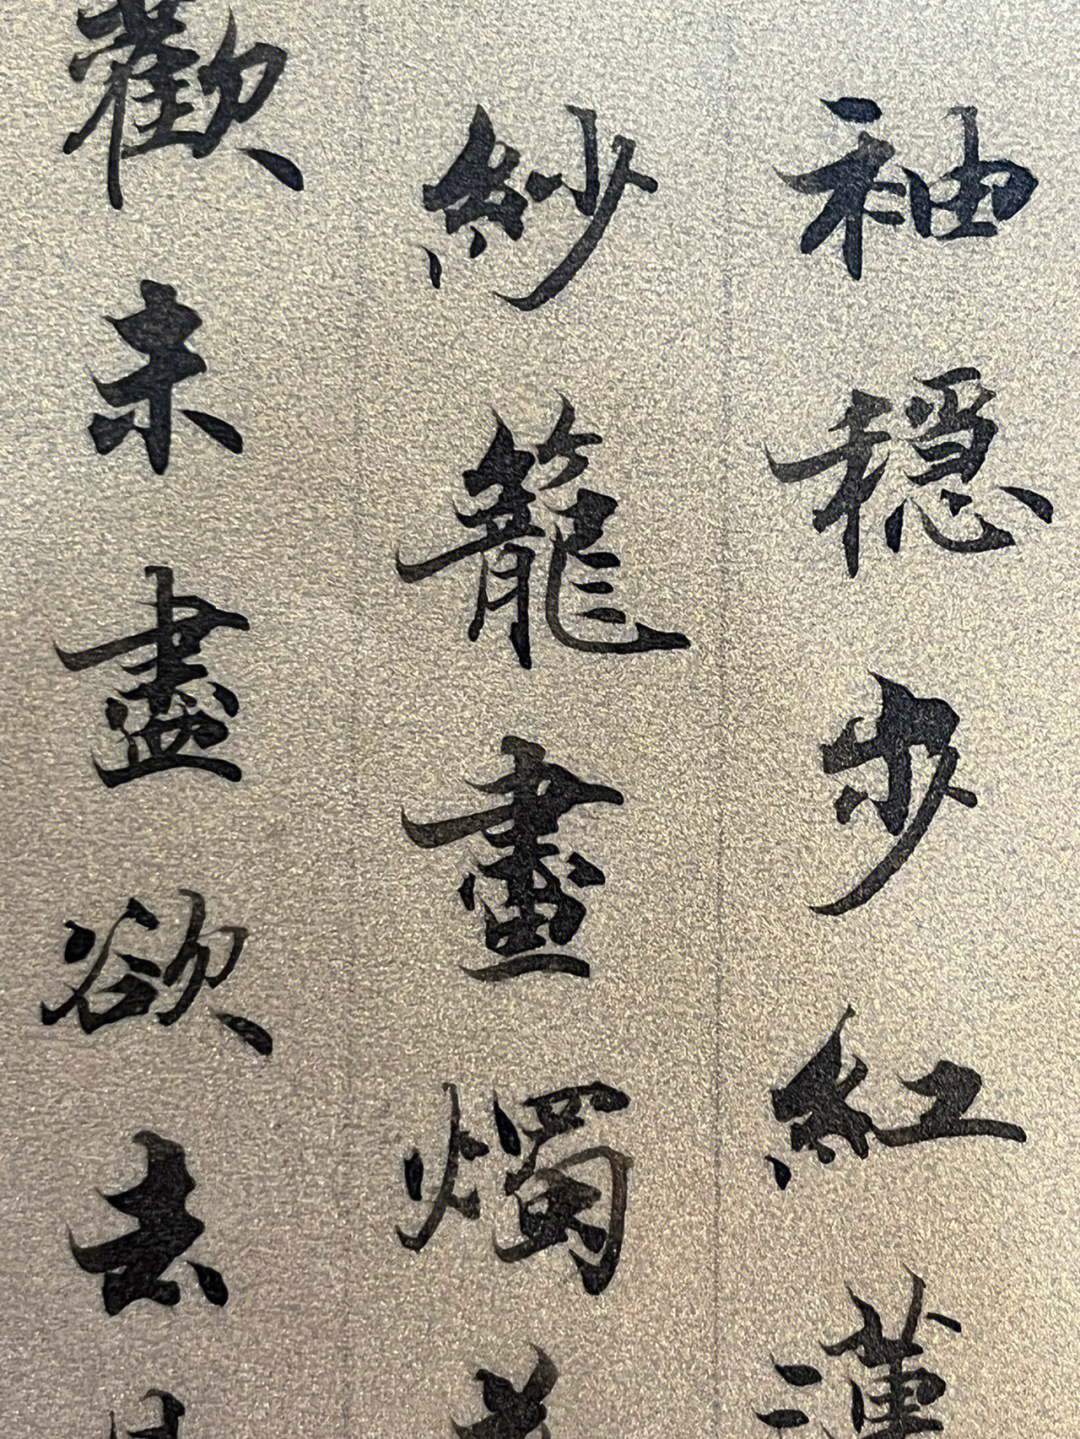 袖穩步紅蓮
紗籠畫燭
歡未盡欲去